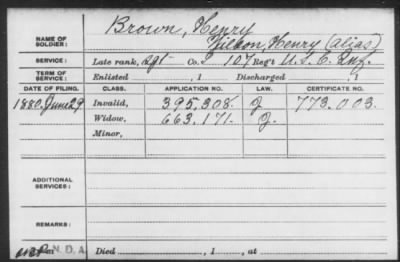 NAME OF SOLDIER: Brown, Henry
Wilson, Henry (alias)
SERVICE: Late rank, Sgt Co. 107 Reg't U.S.C. Inf.
TERM OF SERVICE: Enlisted , 1 Discharged , 1
DATE OF FILING. CLASS. APPLICATION NO. LAW. CERTIFICATE NO.
1880. June 29 Invalid, 395.308. J 773.003.
Widow, 663.171. J.
Minor,
ADDITIONAL SERVICES:
REMARKS:
N.D.A. Died , 1 , at